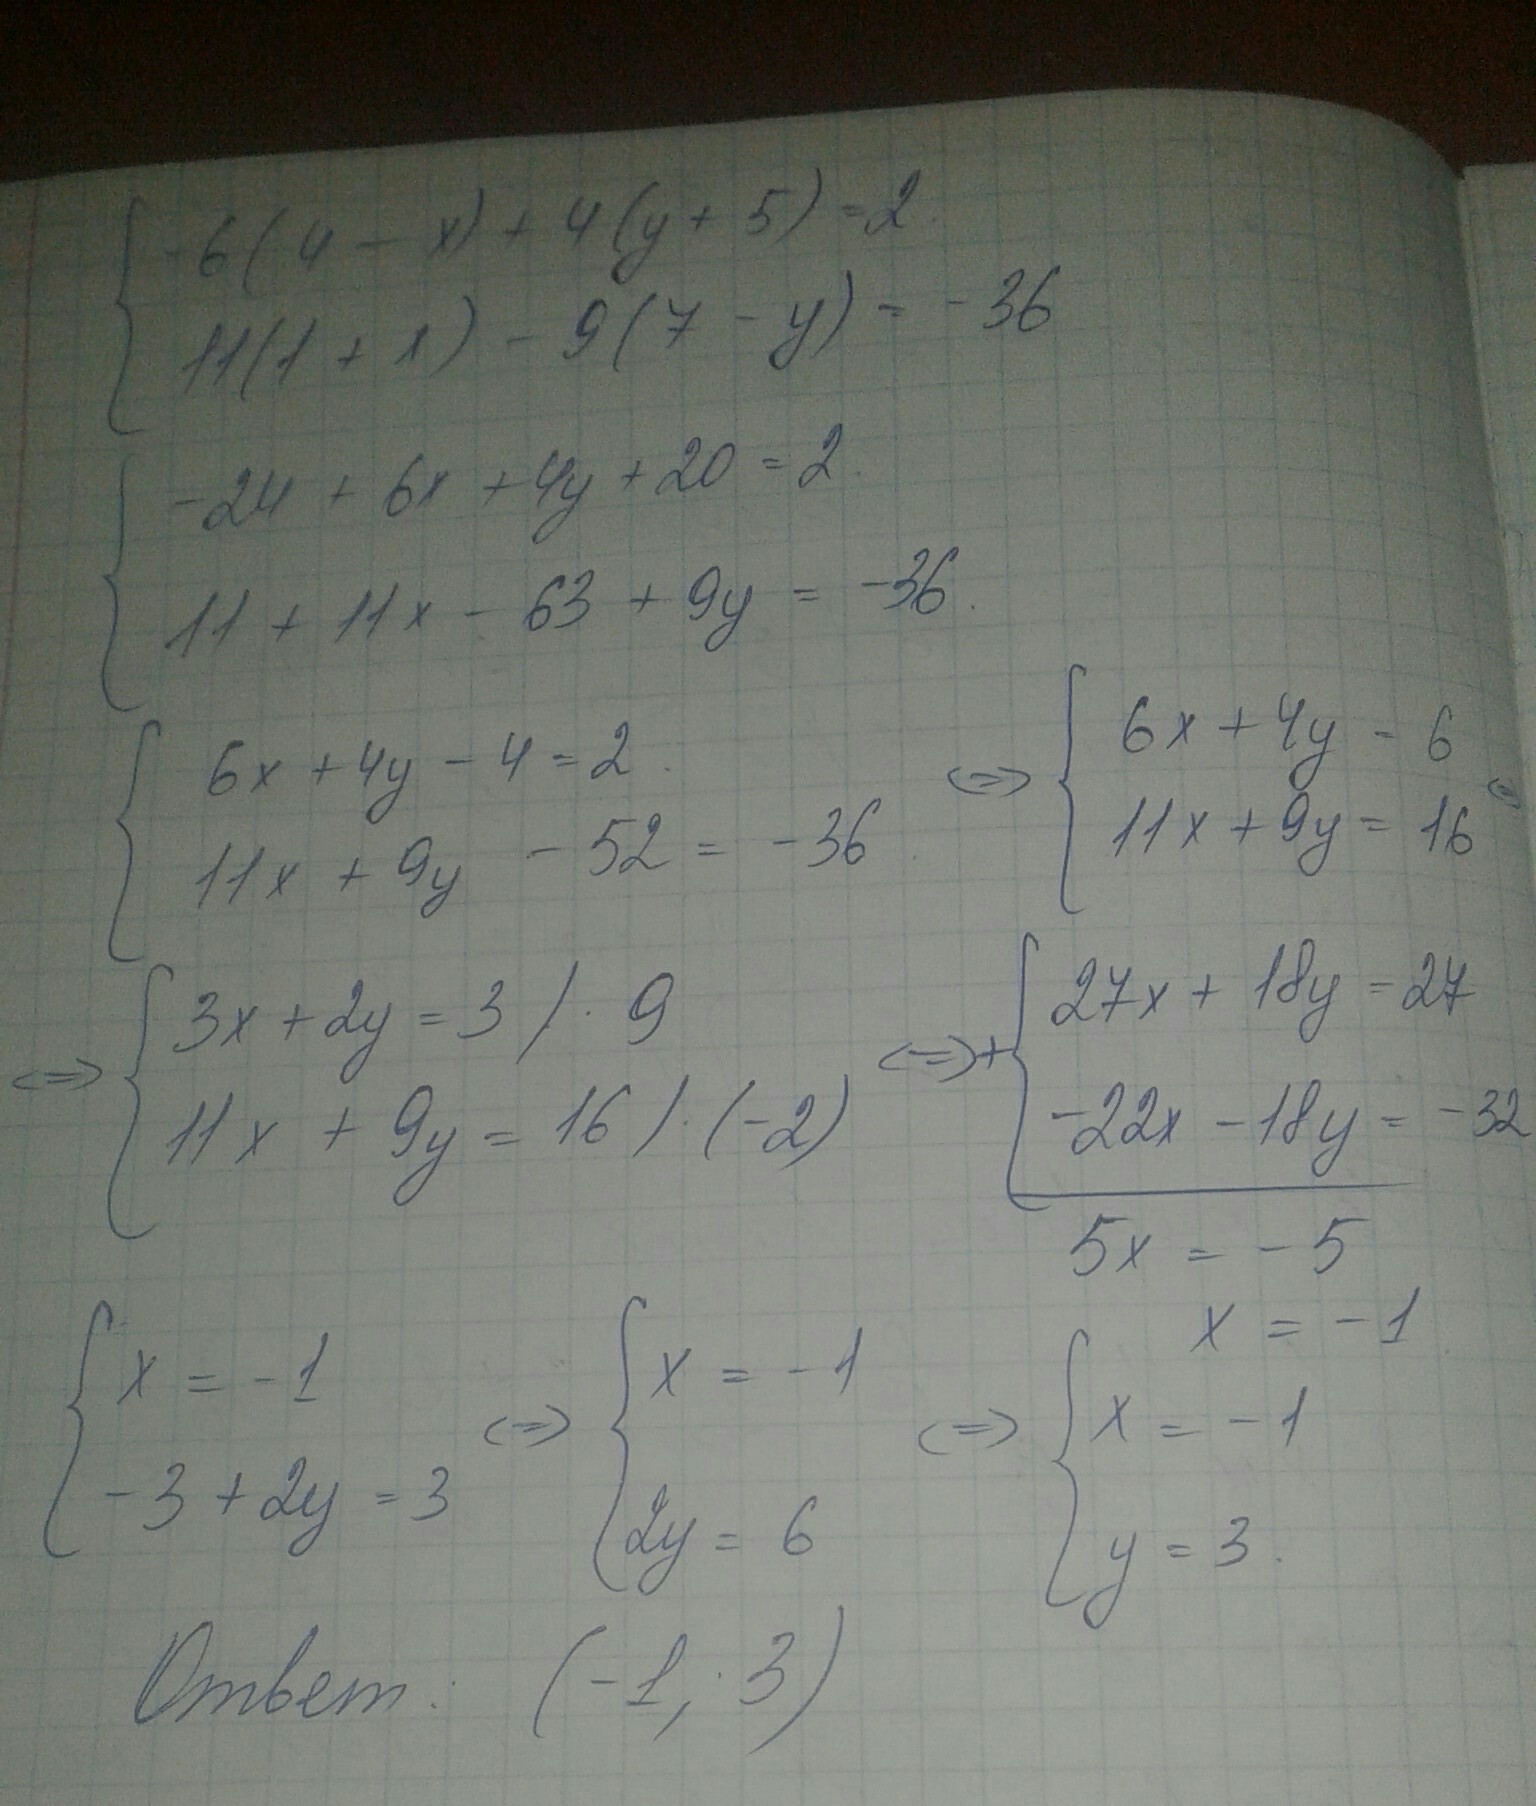 { -6(4 - x) + 4(y + 5) = 2.
11(1 + x) - 9(7 - y) = -36
{ -24 + 6x + 4y + 20 = 2.
11 + 11x - 63 + 9y = -36.
{ 6x + 4y - 4 = 2.
11x + 9y - 52 = -36
⇔ { 6x + 4y = 6
11x + 9y = 16 ⇔
⇔ { 3x + 2y = 3 / · 9
11x + 9y = 16 / · (-2)
⇔ + { 27x + 18y = 27
-22x - 18y = -32
5x = -5
x = -1
{ x = -1
-3 + 2y = 3
⇔ { x = -1
2y = 6
⇔ { x = -1
y = 3.
Ответ: (-1; 3)